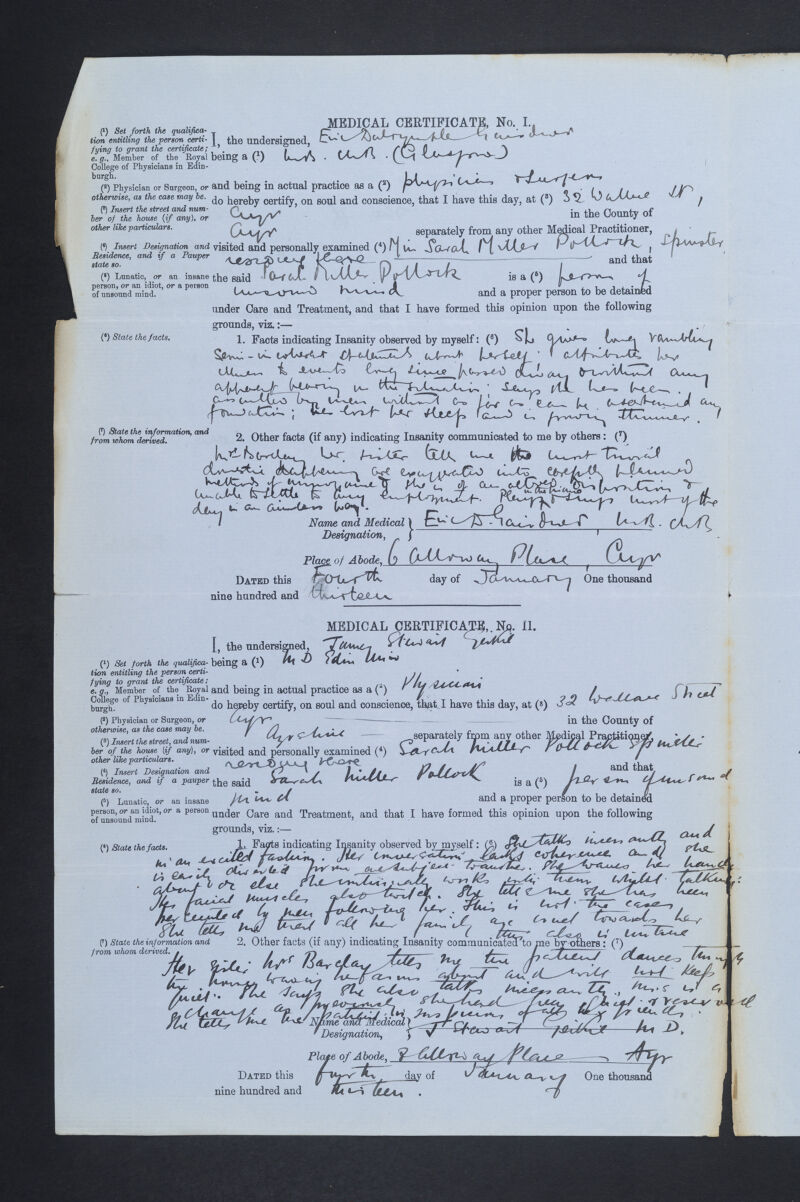 MEDICAL CERTIFICATE, No. I.
(¹) Set forth the qualifica-
tion entitling the person certi-
fying to grant the certificate;
e. g., Member of the Royal
College of Physicians in Edin-
burgh.
I, the undersigned, Eric Dalrymple Gairdner
being a (¹) M.B. Ch.B. (Glasgow)
(²) Physician or Surgeon, or
otherwise, as the case may be.
and being in actual practice as a (²) physician & surgeon
(³) Insert the street and num-
ber of the house (if any), or
other like particulars.
do hereby certify, on soul and conscience, that I have this day, at (³) 32 Wallace St,
Ayr in the County of
Ayr separately from any other Medical Practitioner,
(⁴) Insert Designation and
Residence, and if a Pauper
state so.
visited and personally examined (⁴) Miss Sarah Miller Pollock, Spinster
residing there and that
(⁵) Lunatic, or an insane
person, or an idiot, or a person
of unsound mind.
the said Sarah Miller Pollock is a (⁵) person of
unsound mind and a proper person to be detained
under Care and Treatment, and that I have formed this opinion upon the following
grounds, viz.:—
(⁶) State the facts.
1. Facts indicating Insanity observed by myself: (⁶) She gives long rambling
Semi-incoherent statements about herself: attributes her
illness to events long since passed away without any
apparent bearing on the situation: says she has been
assaulted by men without as far as can be ascertained any
foundation; has lost her sleep and is growing thinner.
(⁷) State the information, and
from whom derived.
2. Other facts (if any) indicating Insanity communicated to me by others: (⁷)
Mrs Barclay her sister tells me the most trivial
domestic happenings are exaggerated into carefully planned
methods of annoyance & she is of an altered disposition &
unable to settle to any employment. Plays on the piano & sings most of the
day in an aimless way.
Name and Medical
Designation,
Eric D. Gairdner, M.B. Ch.B
Place of Abode, 6 Alloway Place, Ayr
DATED this Fourth day of January One thousand
nine hundred and thirteen
MEDICAL CERTIFICATE, No. II.
I, the undersigned, James Stewart Geikie
(¹) Set forth the qualifica-
tion entitling the person certi-
fying to grant the certificate;
e. g., Member of the Royal
College of Physicians in Edin-
burgh.
being a (¹) M D Edin Univ
and being in actual practice as a (²) Physician
(²) Physician or Surgeon, or
otherwise, as the case may be.
do hereby certify, on soul and conscience, that I have this day, at (³) 32 Wallace Street
Ayr in the County of
(³) Insert the street, and num-
ber of the house (if any), or
other like particulars.
Ayrshire separately from any other Medical Practitioner,
visited and personally examined (⁴) Sarah Miller Pollock Spinster
(⁴) Insert Designation and
Residence, and if a pauper
state so.
residing there and that
the said Sarah Miller Pollock is a (⁵) person of unsound
(⁵) Lunatic, or an insane
person, or an idiot, or a person
of unsound mind.
mind and a proper person to be detained
under Care and Treatment, and that I have formed this opinion upon the following
grounds, viz.:—
(⁶) State the facts.
1. Facts indicating Insanity observed by myself: (⁶) She talks incessantly and
in an excited fashion. Her conversation lacks coherence and she
is easily diverted from one subject to another. She waves her hands
about or else she continually works with them whilst talking:
Her facial muscles also twitch. She tells me she has been
persecuted by men following her. This is not the case.
She tells me that all her family are cruel towards her
this also is untrue
(⁷) State the information and
from whom derived.
2. Other facts (if any) indicating Insanity communicated to me by others: (⁷)
Her sister Mrs Barclay tells me the patient dances through
the house waving her arms about and will not keep
quiet. She says she also talks incessantly. This is a
change as previously she had been quiet & reserved
She tells me the patient is suspicious of all her friends.
Name and Medical
Designation,
J Stewart Geikie M D.
Place of Abode, 8 Alloway Place Ayr
DATED this fourth day of January One thousand
nine hundred and thirteen.